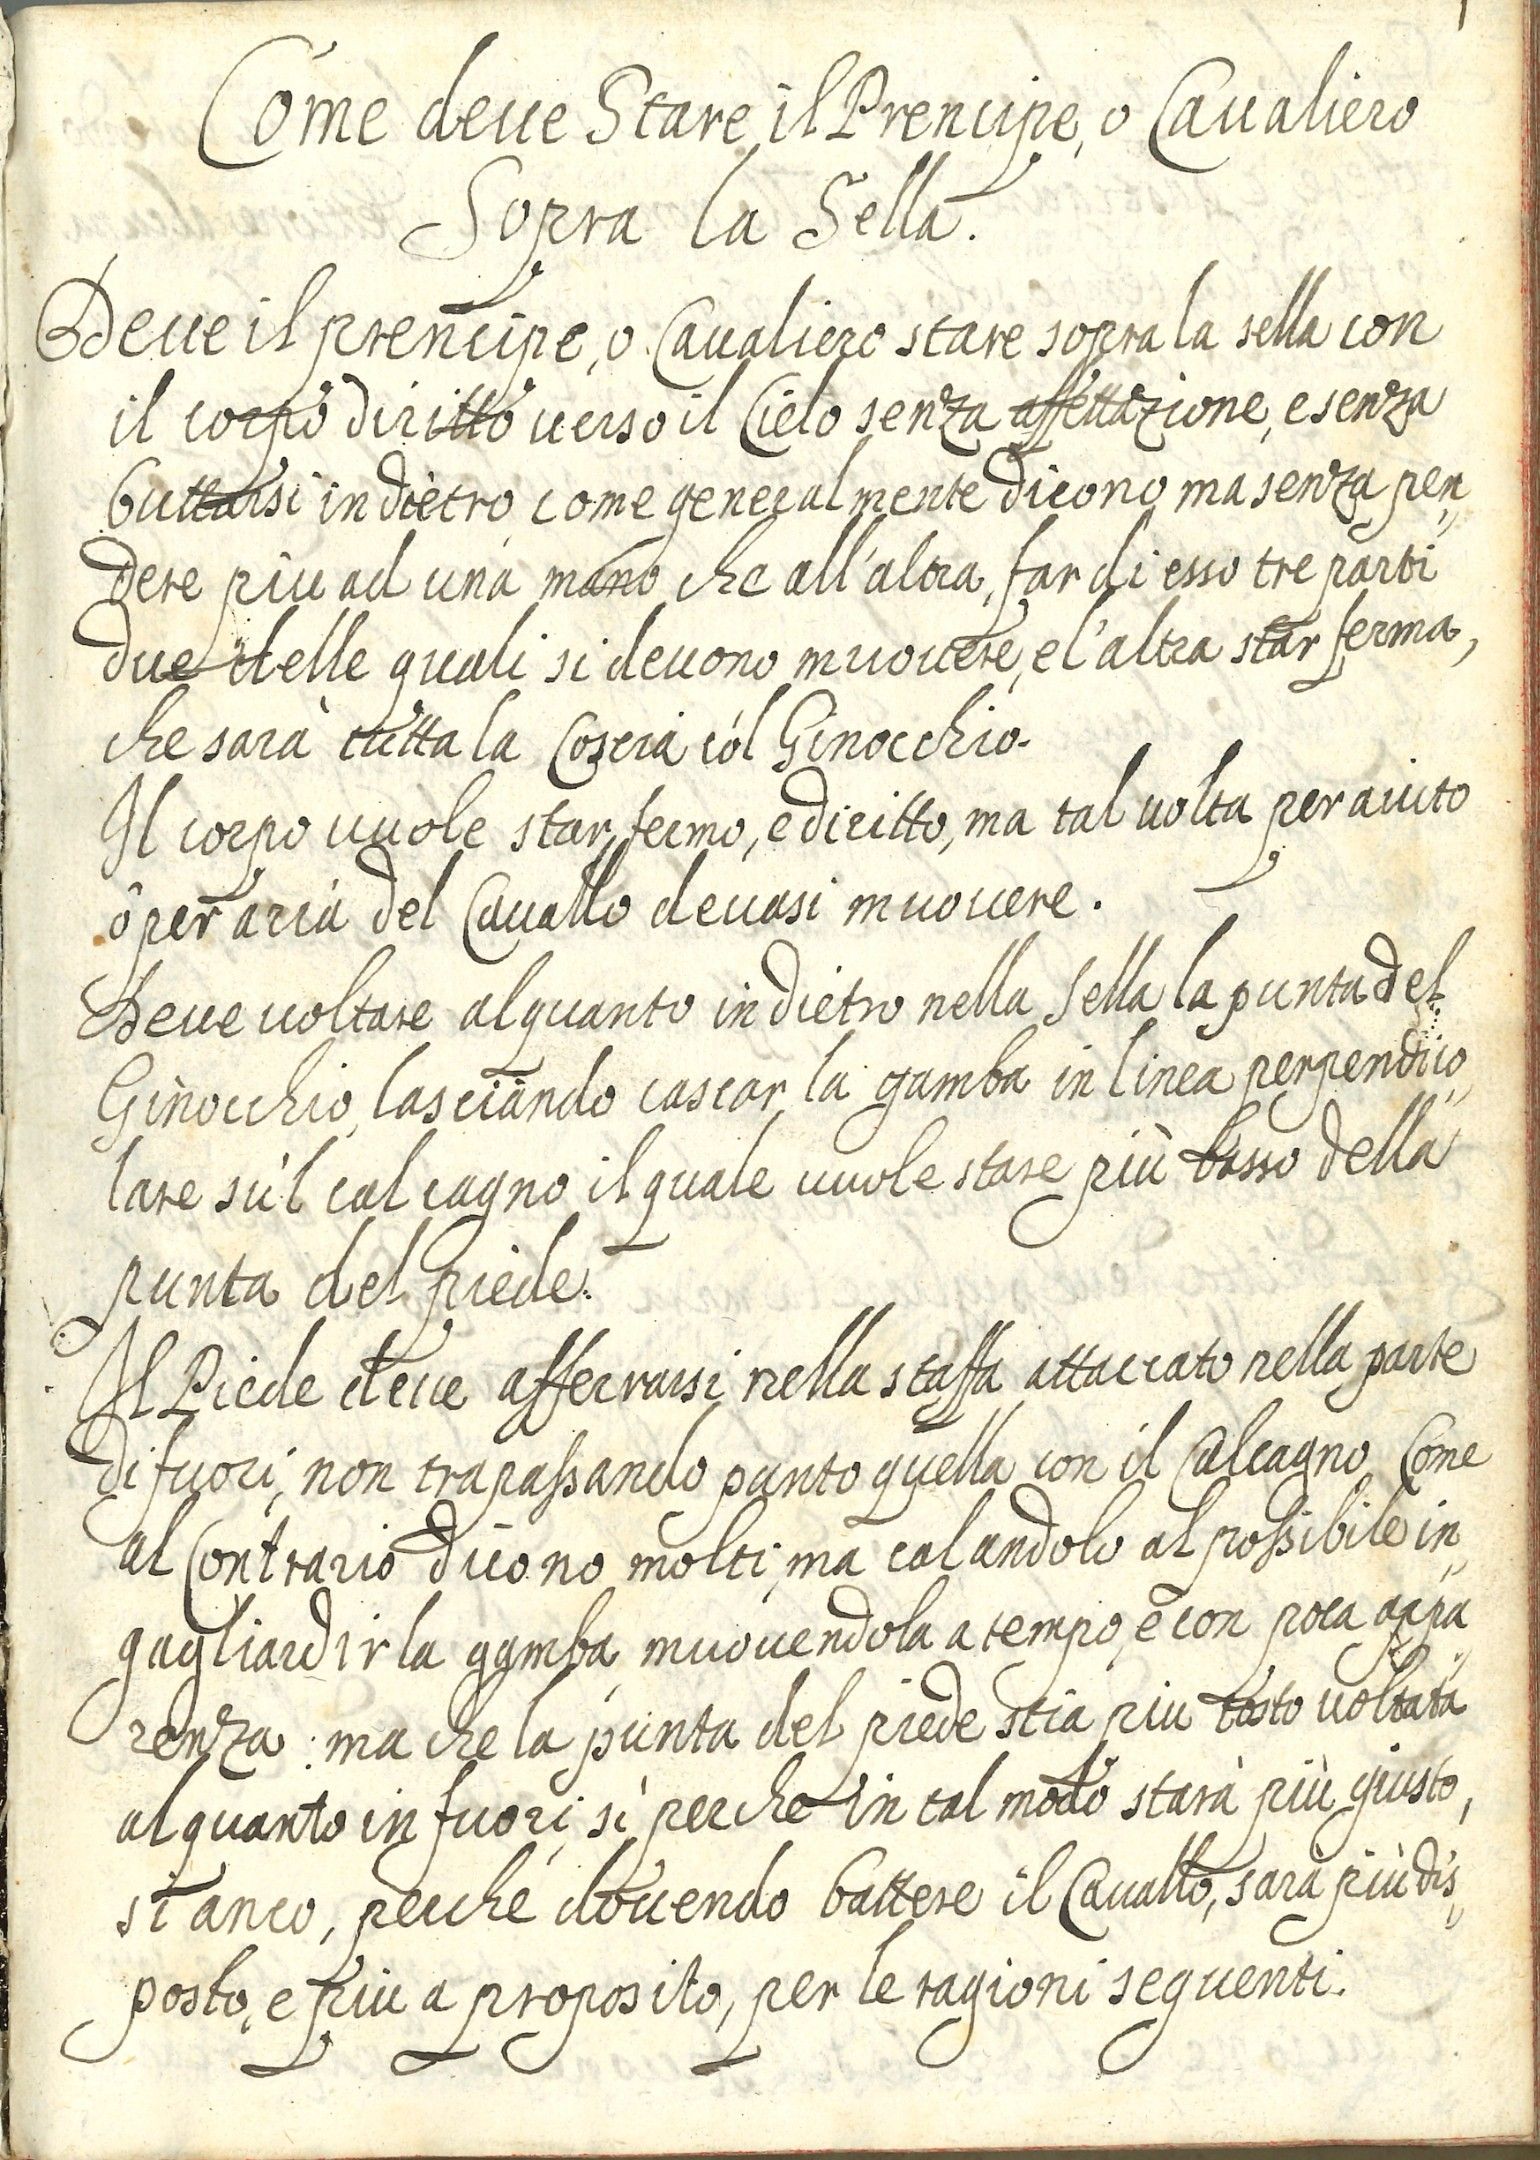 1
Come deue Stare il Prencipe, o Caualiero
Sopra la Sella.
Deue il prencipe, o Caualiero stare sopra la sella con
il corpo diritto uerso il Cielo senza affettazione, e senza
buttarsi indietro come generalmente dicono, ma senza pen„
dere piu ad una mano che all'altra, far di esso tre parti
due delle quali si deuono muouere, e l'altra star ferma,
che sarà tutta la Coscia cól Ginocchio.
Il corpo uuole star fermo, e diritto, ma tal uolta per aiuto
ô per aria del Cauallo deuasi muouere.
Deue uoltare alquanto indietro nella Sella la punta del
Ginocchio, lasciando cascar la gamba in linea perpendico„
lare sù'l calcagno il quale uuole stare più basso della
punta del piede.
Il Piede deue afferrarsi nella staffa attaccato nella parte
di fuori, non trapassando punto quella con il Calcagno Come
al Contrario dicono molti, ma calandolo al possibile in„
gagliardir la gamba, muouendola a tempo, e con poca appa„
renza: ma che la punta del piede stia piu tosto uoltata
alquanto in fuori, sì perche in tal modo starà più giusto,
si anco, perche douendo battere il Cauallo, sarà più dis„
posto, e piu a proposito, per le ragioni seguenti.